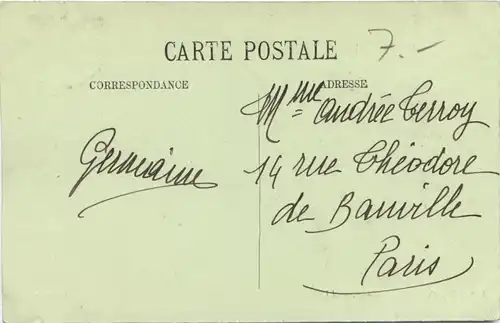 CARTE POSTALE
7.-
CORRESPONDANCE
ADRESSE
Mme Andrée Terroy
Germaine
14 rue Théodore
de Banville
Paris